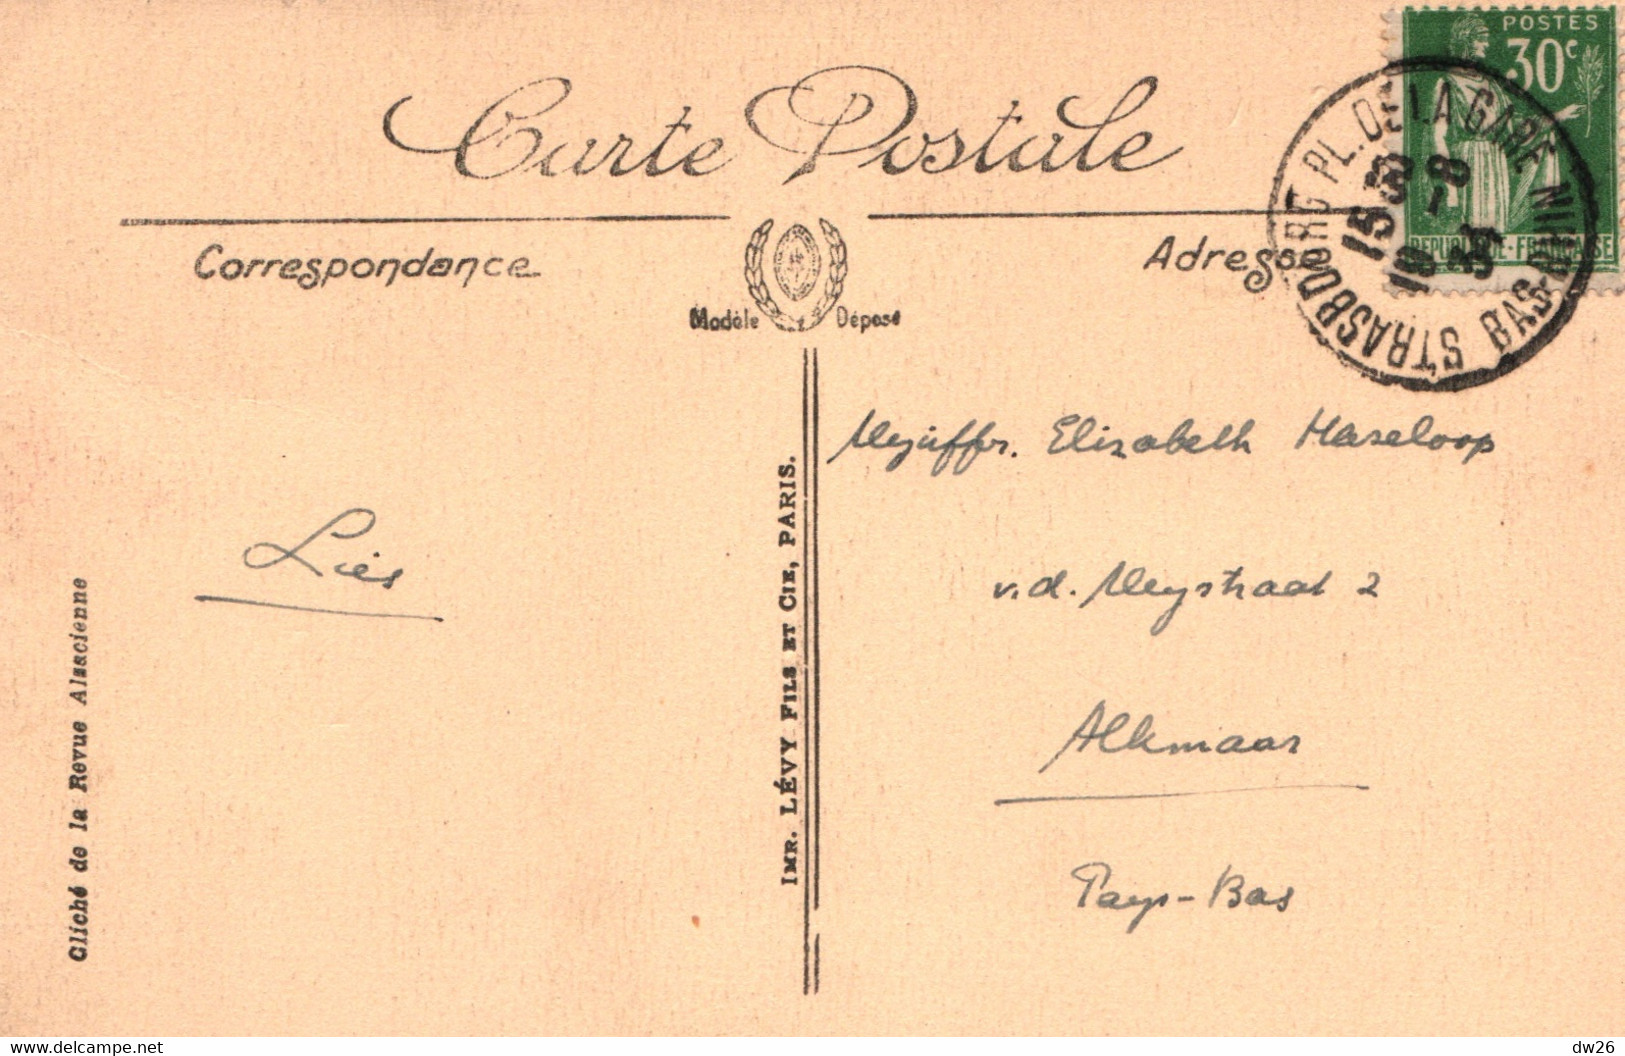 Carte Postale
POSTES
30c
REPUBLIQUE-FRANÇAISE
STRASBOURG PL. DE LA GARE
BAS-RHIN
1530
8 -1
19 34
Correspondance
Adresse
Modèle Déposé
Mejuffr. Elizabeth Haseloop
v.d. Meystraat 2
Alkmaar
Pays-Bas
Lies
IMP. LÉVY FILS ET CIE, PARIS.
Cliché de la Revue Alsacienne
delcampe.net
dw26